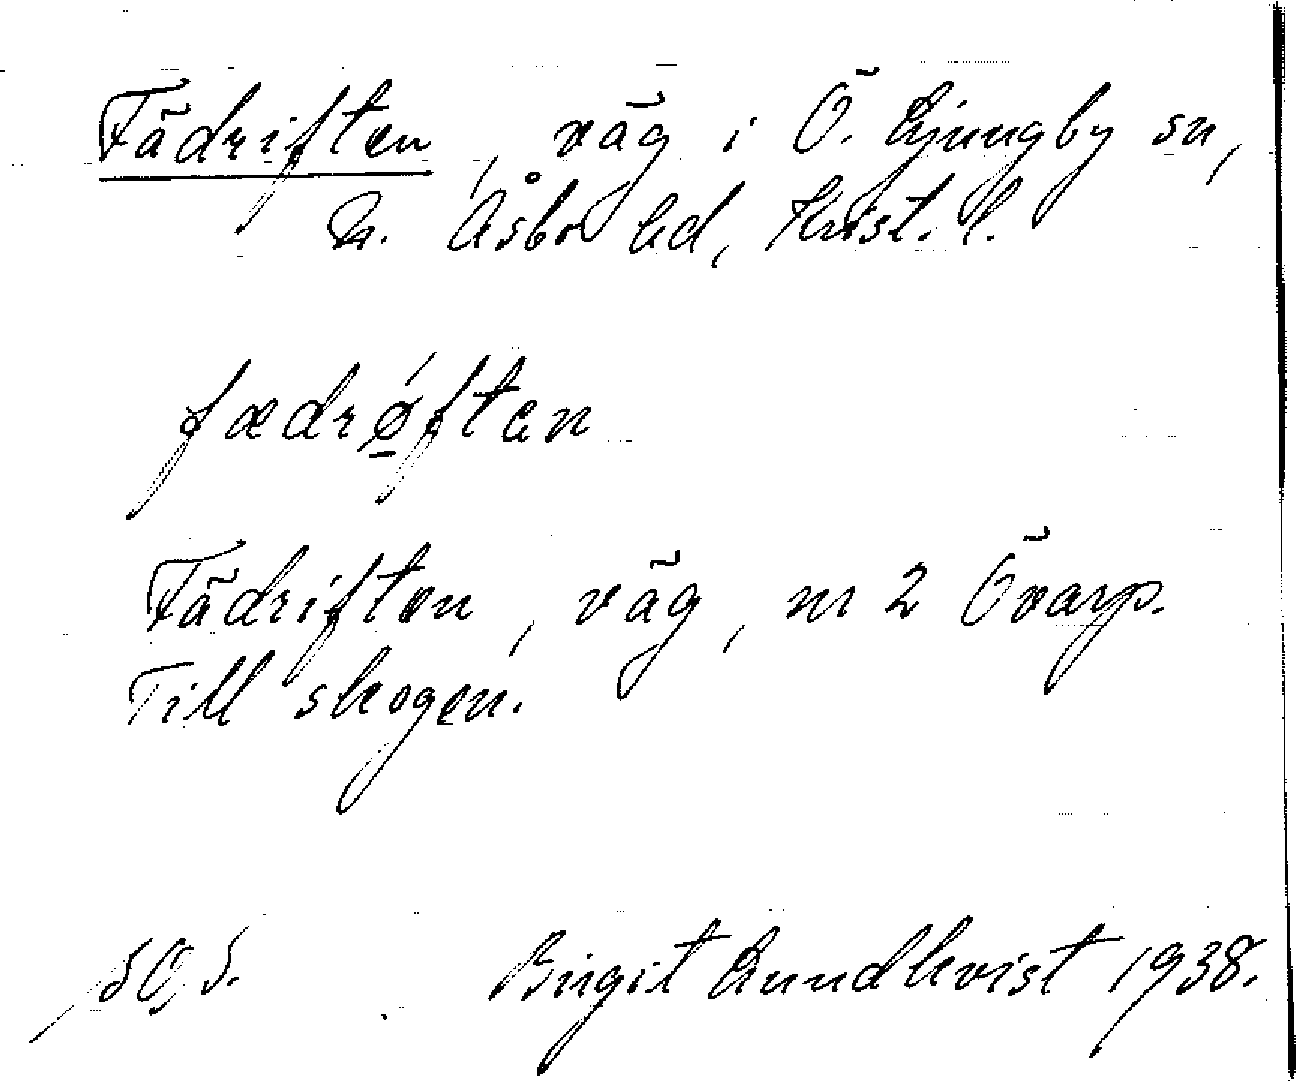 Fädriften, väg i Ö. Ljungby sn,
N. Åsbo hd, Krist. l.
fædrǿ̱ften
Fädriften, väg, nr 2 Övarp.
Till skogen.
Birgit Lundkvist 1938.